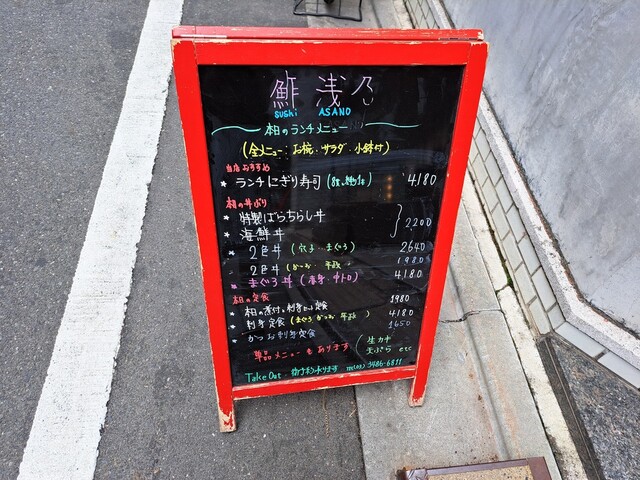 鮓 浅乃
sushi ASANO
本日のランチメニュー
(全メニュー:お椀・サラダ・小鉢付)
当店おすすめ
★ ランチにぎり寿司 4180
本日の丼ぶり
★ 特製ばらちらし丼
★ 海鮮丼 2200
★ 2色丼 (穴子・まぐろ) 2640
2色丼 1980
★ まぐろ丼 (赤身・中トロ) 4180
本日の定食
★ 本日の煮付と刺身セット定食 1980
★ 刺身定食 (まぐろ かつお 平政) 4180
★ かつお刺身定食 1650
単品メニューもあります
生カキ
天ぷら etc
Take Out 3486-6811